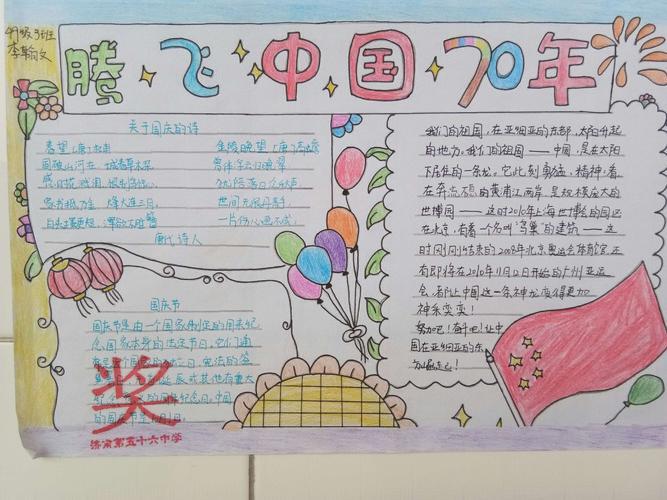 19级3班
李翰文
腾飞中国70年
关于国庆的诗
春望 [唐] 杜甫
国破山河在，城春草木深。
感时花溅泪，恨别鸟惊心。
烽火连三月。
白头搔更短，浑欲不胜簪
金陵晚望 [唐] 高蟾
曾伴浮云归晚翠
犹陪落日众秋声。
世间无限丹青手
一片伤心画不成
唐代诗人
国庆节
国庆节是由一个国家制定的用来纪
念国家本身的法定节日，它们通
常是这个国家的独立、宪法的签
或其他有重大
纪念日，中国
的国庆节是10月1日。
奖
济南第五十六中学
我们的祖国，在亚细亚的东部，太阳升起
的地方。我们的祖国——中国，是在太阳
下居住的一条龙。它此刻勇猛，精神，看，
在奔流不息的黄浦江两岸是规模庞大的
世博园——这时2010年上海世博会的园区
在北京，有着一个名叫"鸟巢"的建筑——这
时刚刚结束的2008年北京奥运会体育馆，还
有即将在2010年11月12日开始的广州亚运
会，都让中国这一条神龙变得更加
神采奕奕！
努力吧！奋斗吧！让中
国在亚细亚的东